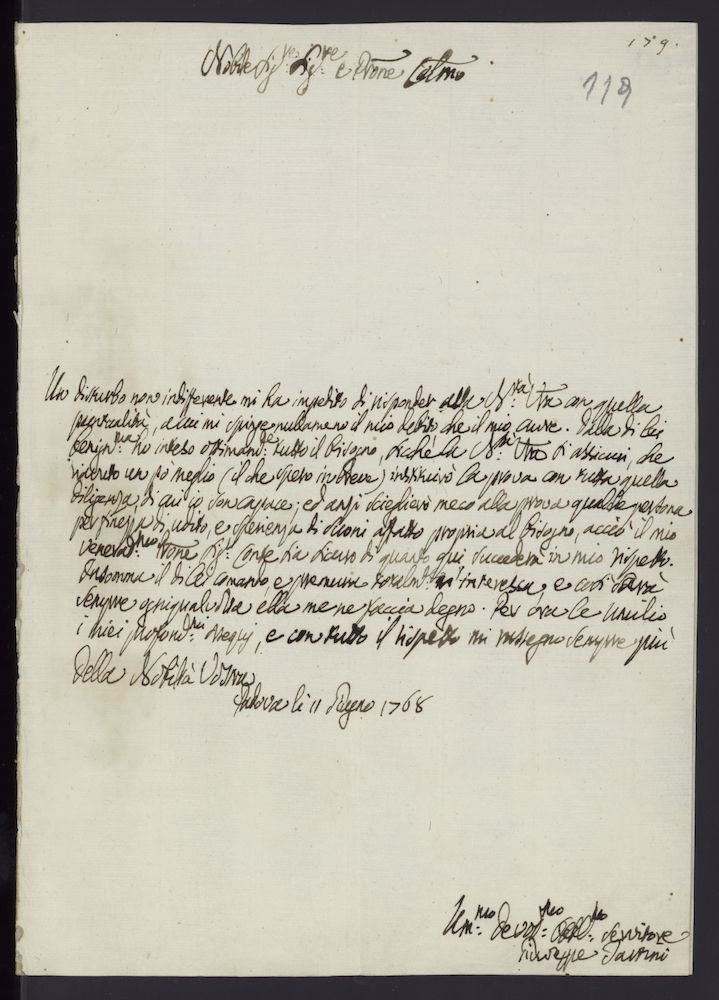 159.
119
Nobile Sig:re Sig:re e Pron Colmo
Un disturbo non indifferente mi ha impedito di risponder alla N:tà Vra con quella
puntualità, a cui mi spinge nullameno il mio debito che il mio cuore. Dalla di lei
benign:ma ho inteso ottimam:te tutto il bisogno, sicchè la N:tà Vra si assicuri, che
un pò meglio (il che spero in breve) instituirò la prova con tutta quella
diligenza, di cui io son capace; ed anzi sceglierò meco alla prova qualche persona
per finezza di udito, e sperienza di suoni affatto propria al bisogno, acciò il mio
venerad:mo Pron Sig:r Conte sia sicuro di quanto qui succederà in mio rispetto.
Insomma il di lei comando, e premura m'interessa, e così sarà
sempre ogniqualvolta ella me ne faccia degno. Per ora le umilio
i miei profond:mi ossequj, e con tutto il rispetto mi rassegno sempre più
Della Nobiltà Vostra
Padova li 11 Giugno 1768
Um:mo Devot:mo Obbl:mo Servitore
Giuseppe Tartini